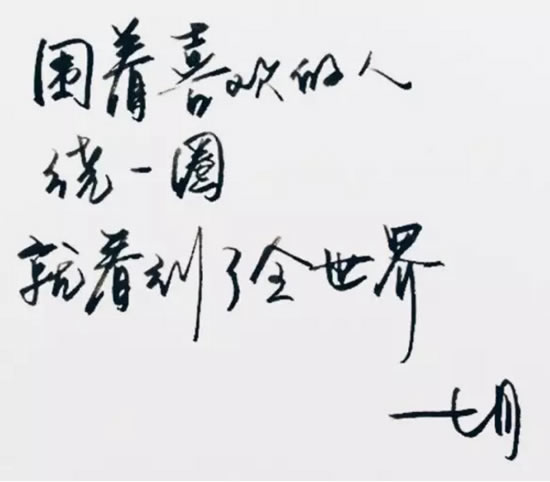 围着喜欢的人
绕一圈
就看到了全世界
七月